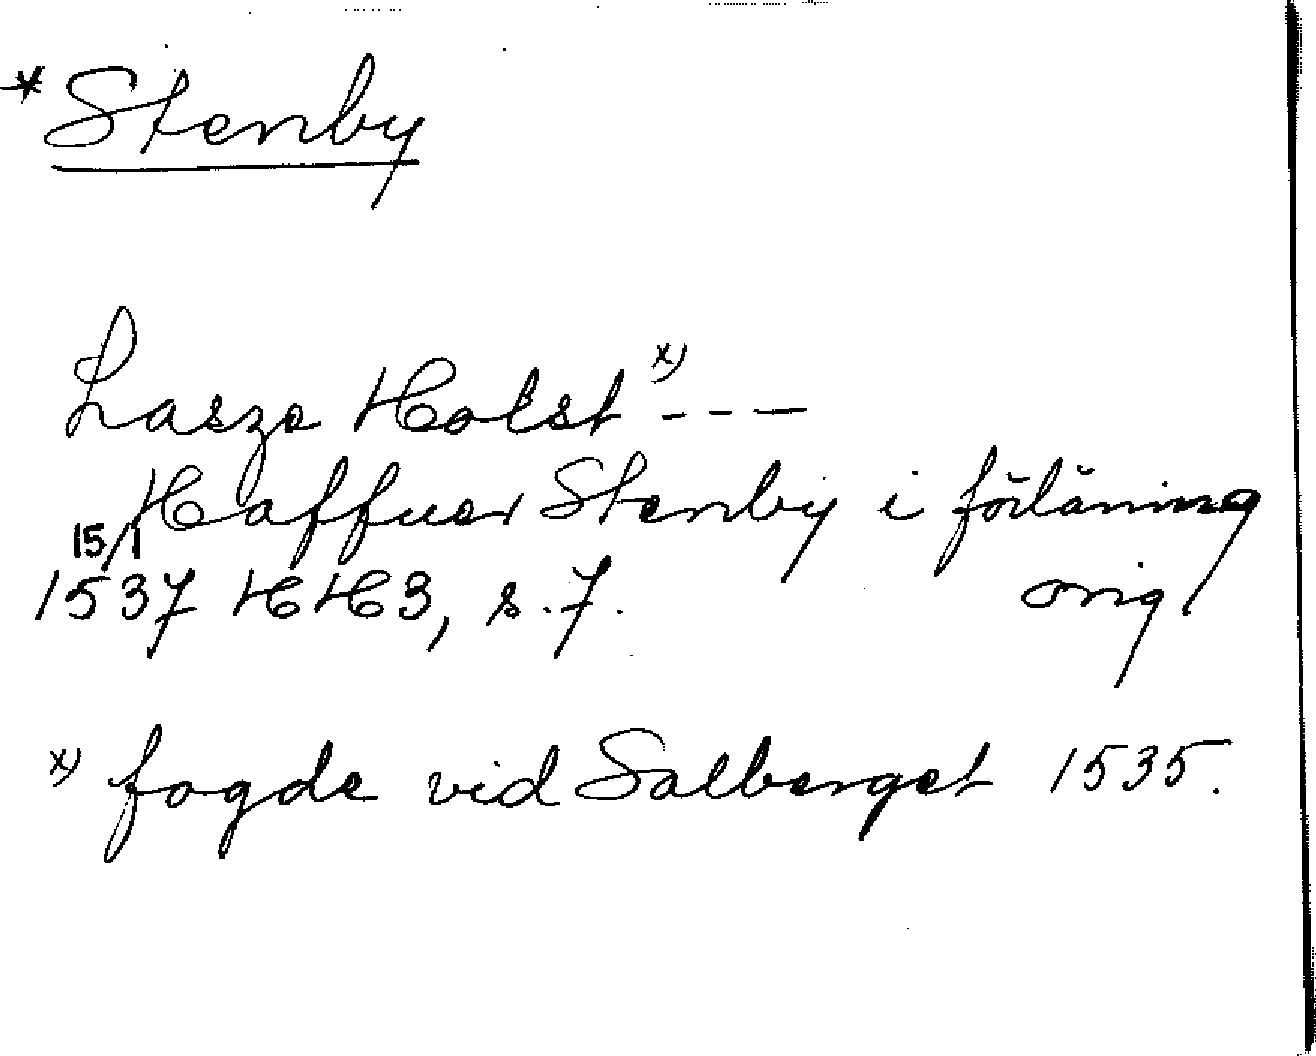 *Stenby
Lasze Holst x) - - -
Haffuer Stenby i förläning
15/1
1537 HH3, s. 7. orig
x) fogde vid Salberget 1535.